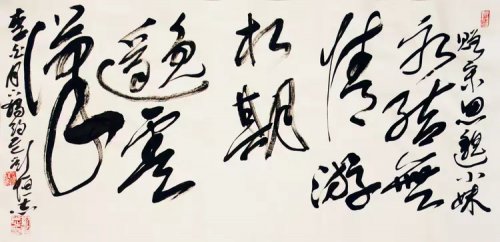 贻宗思邈小妹
永結無
情游
相期
邈雲
漢
李白月下獨酌句